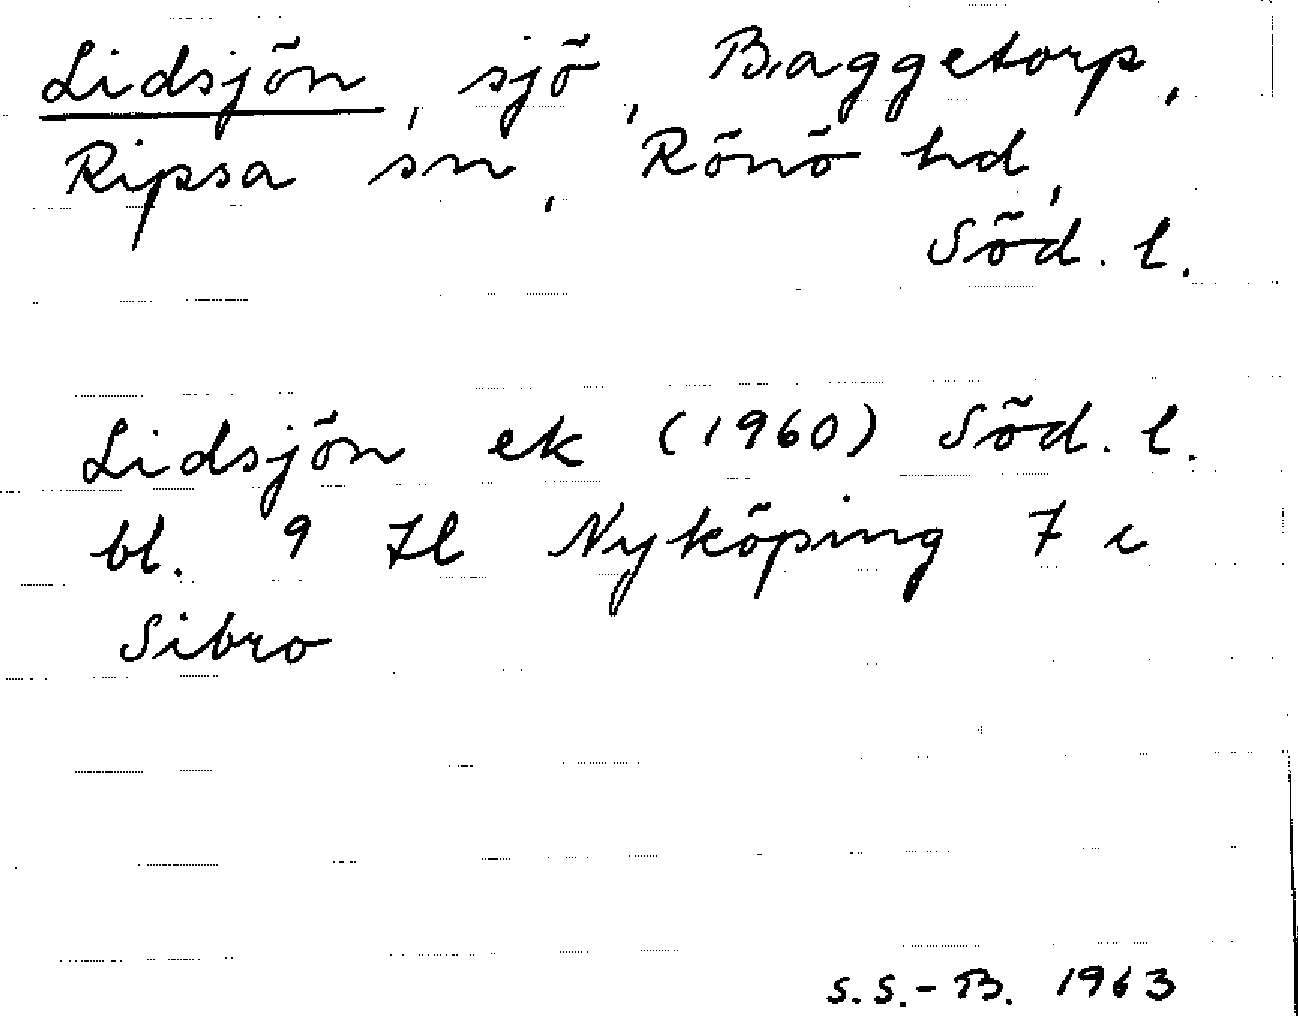 Lidsjön, sjö, Baggetorp,
Ripsa sn, Rönö hd,
Söd. l.
Lidsjön ek (1960) Söd. l.
bl. 9 Hl Nyköping 7 c
Sibro
S.S.-B. 1963